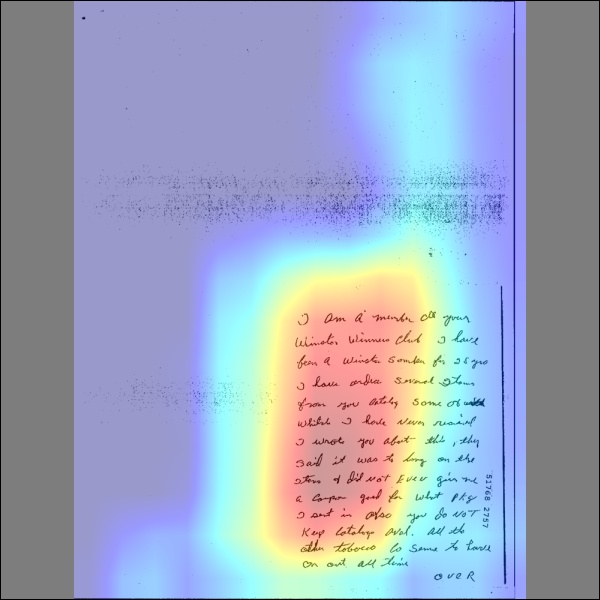 I am a member of your
Winston Winners Club I have
been a Winston Smoker for 28 yrs
I have ordered Several Items
from you catalog Some of
which I have Never received
I wrote you about this, they
Said it was to long on the
items & did NOT Even give me
a Coupon good for what pkg
I sent in also you do NOT
Keep Catalogs Aval. All the
other tobacco Co Seme to have
On out all time
OVER
51768 2757